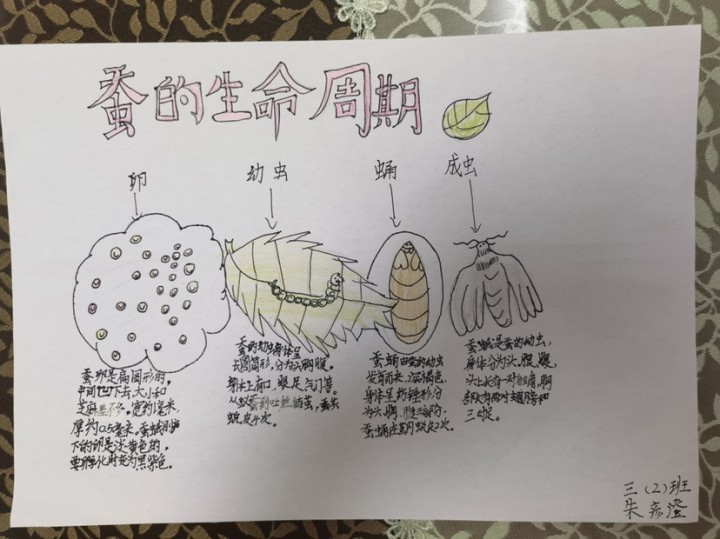 蚕的生命周期
卵
幼虫
蛹
成虫
蚕卵是扁圆形的,
中间凹下去,大小和
芝麻差不多。宽约1毫米,
厚约0.5毫米。蚕蛾刚
下的卵是淡黄色的,
要孵化时变为黑紫色。
蚕的幼虫身体呈
长圆筒形,分为头胸腹
口、眼、足、气门等。
从蚁蚕到吐丝结茧,
蜕皮4次。
蚕蛹由蚕的幼虫
发育而来,
身体呈纺锤形分
为头、胸、腹三部分,
蚕蛹在茧内蜕皮2次。
蚕蛾是蚕的幼虫,
身体分为头、腹、
头上长有一对触角,胸
部长有两对翅膀和
三对足。
三(2)班
朱彦澄